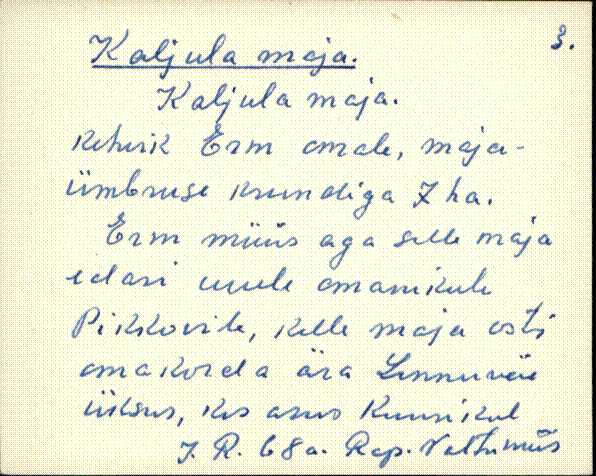 3.
Kaljula maja.
Kaljula maja.
Kehvik Erm omale, maja-
ümbruse krundiga 7 ha.
Erm müüs aga selle maja
edasi uuele omanikule
Pikkovile, kelle maja osti
omakorda ära Linnuväe
üksus, kes asus Kuusikul
J. R. 68 a. Rap.